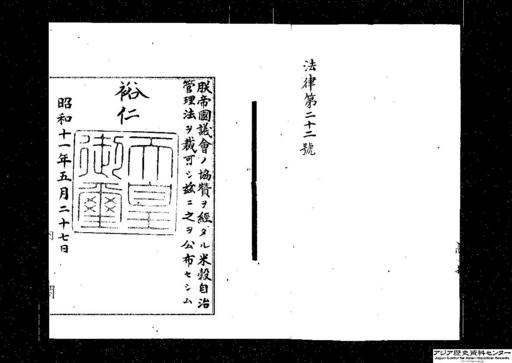 法律第二十二號
朕帝國議會ノ協贊ヲ經タル米穀自治
管理法ヲ裁可シ玆ニ之ヲ公布セシム
裕仁
天皇
御璽
昭和十一年五月二十七日
アジア歴史資料センター
Japan Center for Asian Historical Records